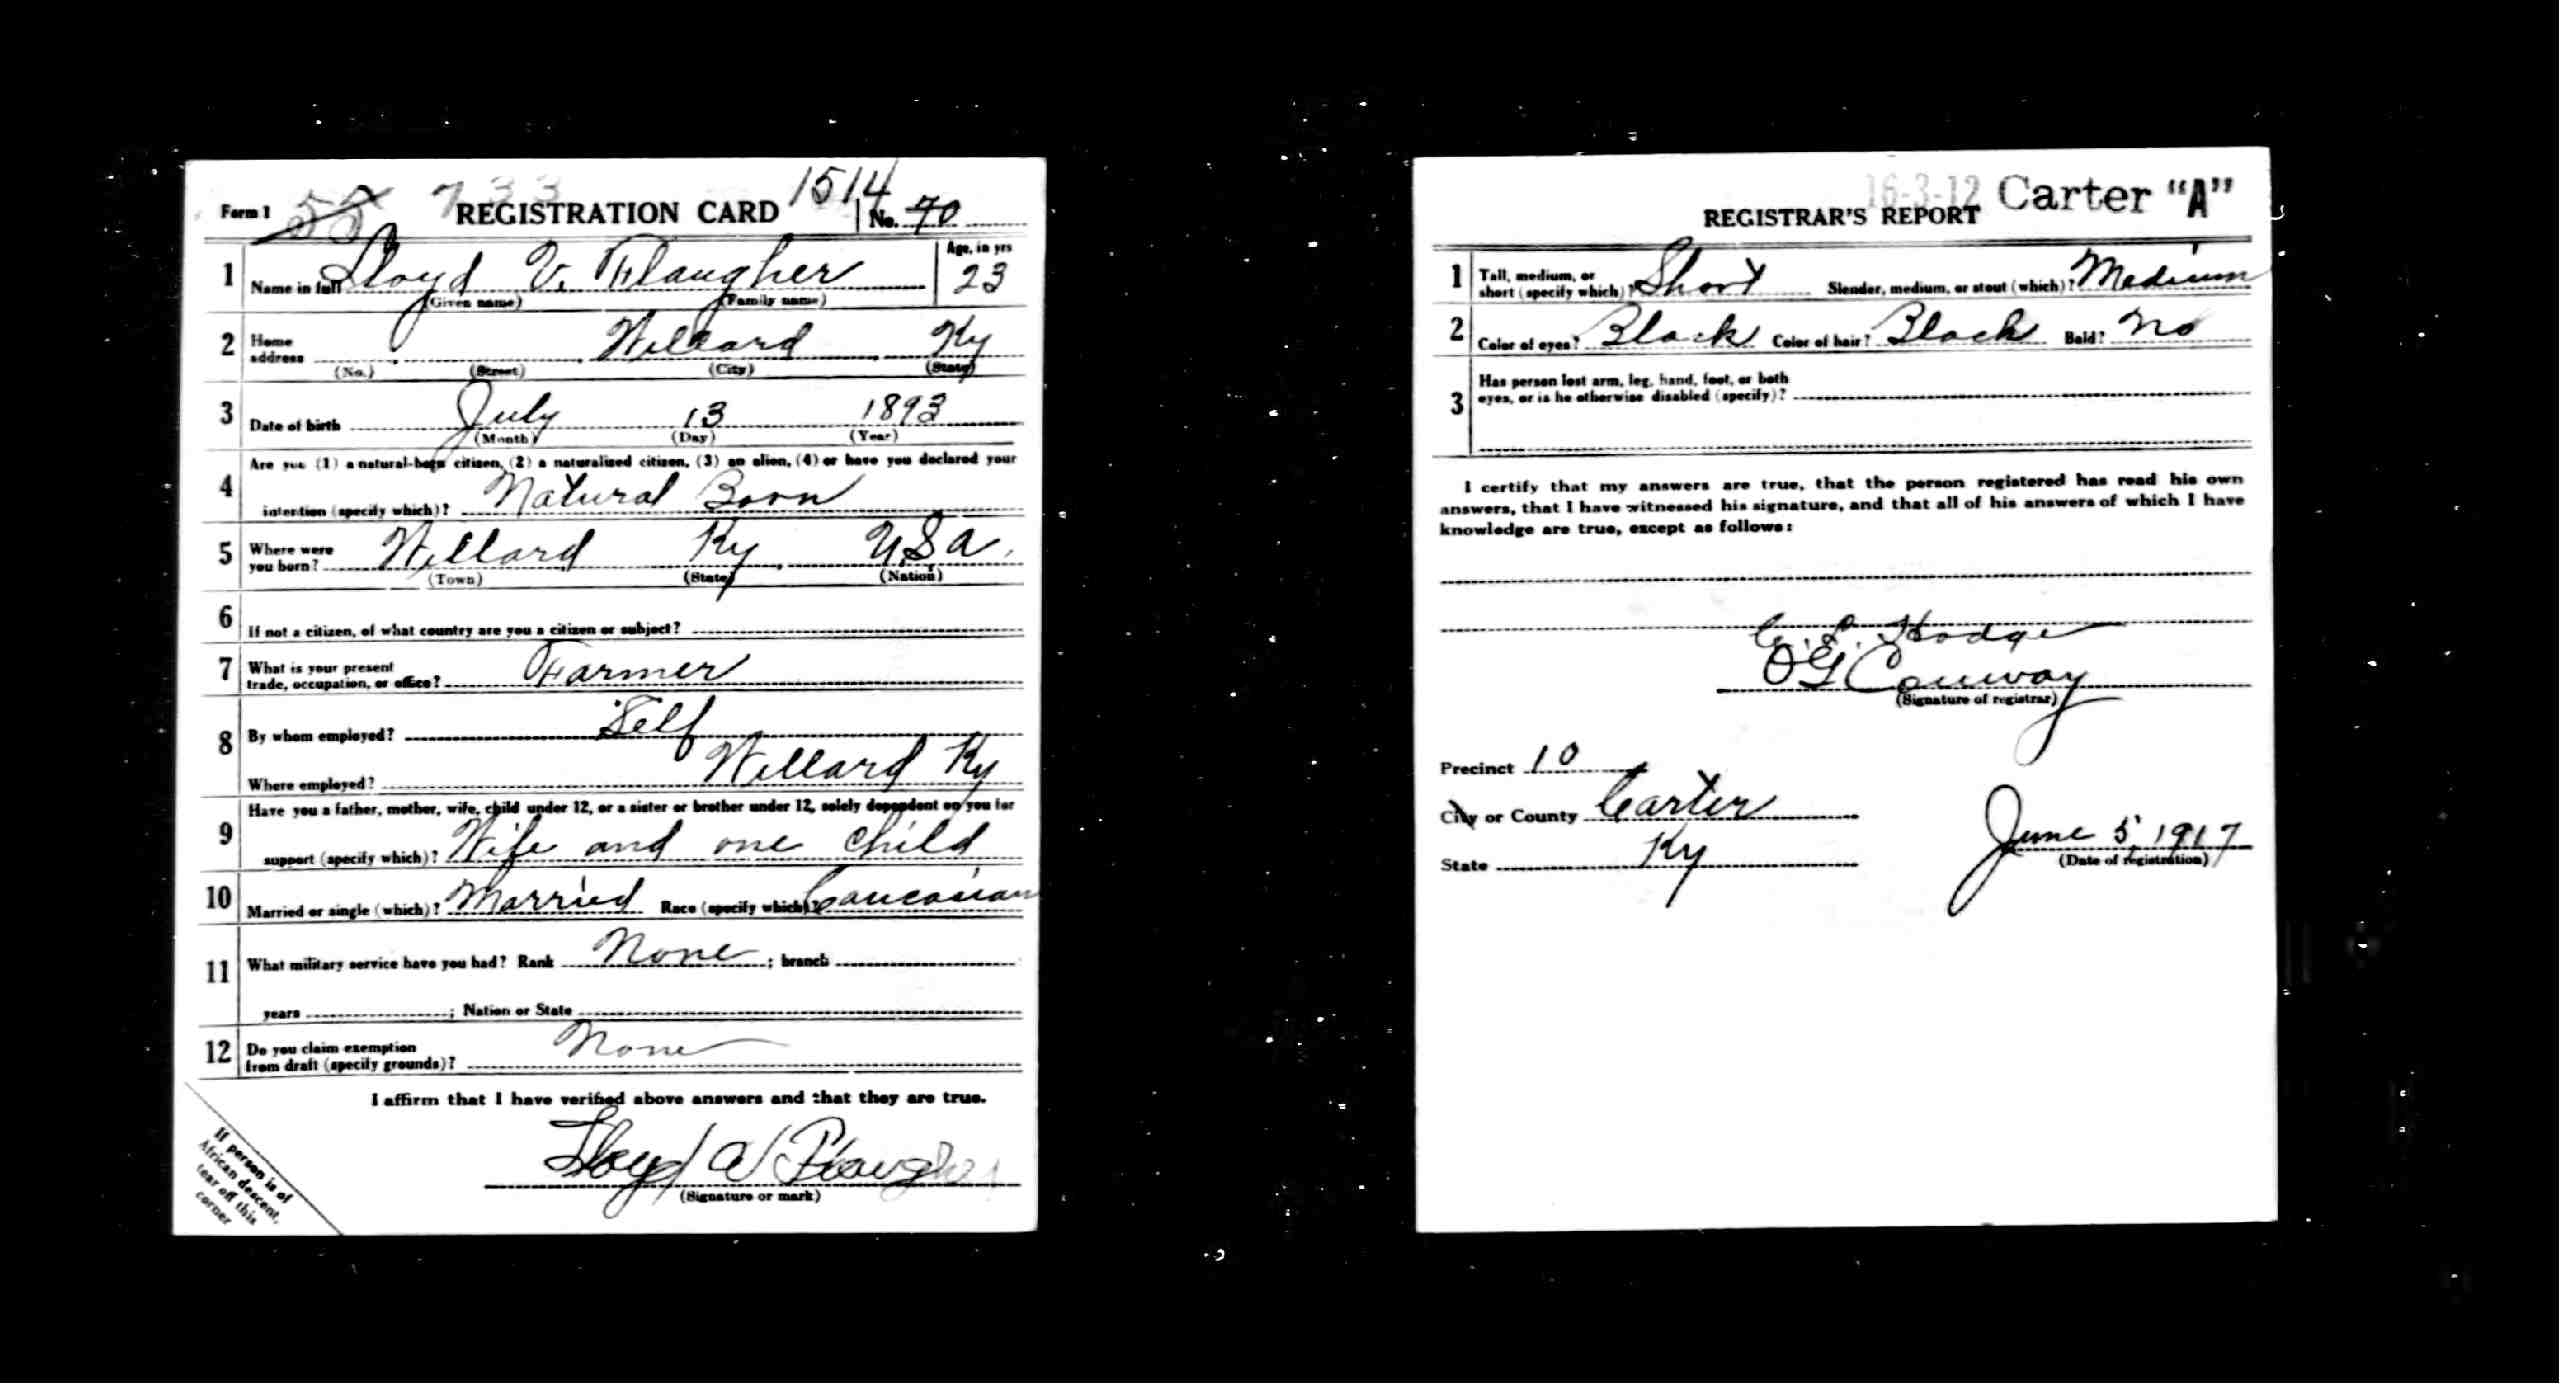 1514
733
Form 1 58 REGISTRATION CARD No. 70
1 Name in full Lloyd V. Flaugher Age, in yrs 23
(Given name) (Family name)
2 Home address Willard Ky
(No.) (Street) (City) (State)
3 Date of birth July 13 1893
(Month) (Day) (Year)
4 Are you (1) a natural-born citizen, (2) a naturalized citizen, (3) an alien, (4) or have you declared your
intention (specify which)? Natural Born
5 Where were you born? Willard Ky USA.
(Town) (State) (Nation)
6 If not a citizen, of what country are you a citizen or subject?
7 What is your present
trade, occupation, or office? Farmer
8 By whom employed? Self
Where employed? Willard Ky
9 Have you a father, mother, wife, child under 12, or a sister or brother under 12, solely dependent on you for
support (specify which)? Wife and one child
10 Married or single (which)? Married Race (specify which)? Caucasian
11 What military service have you had? Rank None ; branch
years ; Nation or State
12 Do you claim exemption
from draft (specify grounds)? None
I affirm that I have verified above answers and that they are true.
Lloyd Flaugher
(Signature or mark)
If person is of
African descent,
tear off this
corner
16-3-12 Carter "A"
REGISTRAR'S REPORT
1 Tall, medium, or
short (specify which)? Short Slender, medium, or stout (which)? Medium
2 Color of eyes? Black Color of hair? Black Bald? No
3 Has person lost arm, leg, hand, foot, or both
eyes, or is he otherwise disabled (specify)?
I certify that my answers are true, that the person registered has read his own
answers, that I have witnessed his signature, and that all of his answers of which I have
knowledge are true, except as follows:
C. L. Hodge
OG Conway
(Signature of registrar)
Precinct 10
City or County Carter
State Ky
June 5, 1917
(Date of registration)